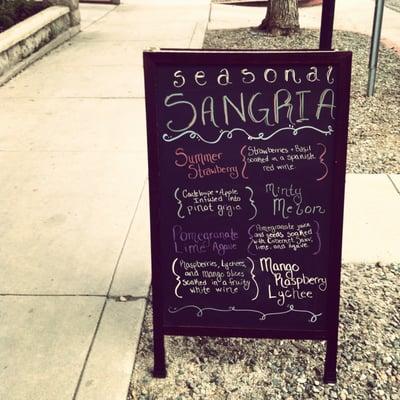 seasonal
SANGRIA
Summer
Strawberry
Strawberries + Basil
soaked in a spanish
red wine
Cantelope + Apple
Infused into
pinot grigio
Minty
Melon
Pomegranate
Lime Agave
Pomegranate juice
and seeds soaked
with Cabernet Sauv,
lime, and agave.
Raspberries, Lychees,
and mango slices
soaked in a fruity
white wine
Mango
Raspberry
Lychee